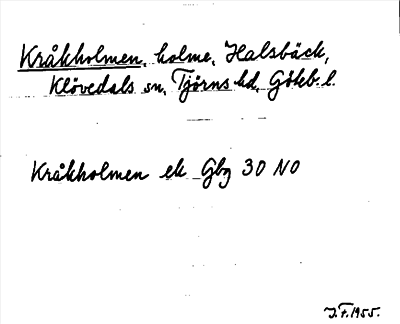 Kråkholmen, holme, Halsbäck,
Klövedals sn, Tjörns hd, Göteb. l.
Kråkholmen ek Gbg 30 NO
J.F. 1955.